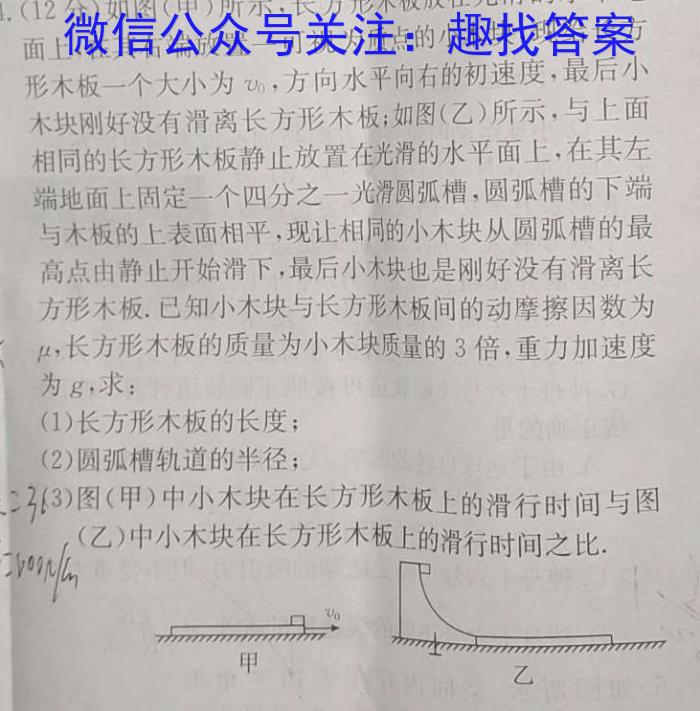 .(12分)如图(甲)所示,长方形木板放在光滑的水平
微信公众号关注：趣找答案
面上,在其右端放置一可视为质点的小木块,现给长方
形木板一个大小为 v₀,方向水平向右的初速度,最后小
木块刚好没有滑离长方形木板;如图(乙)所示,与上面
相同的长方形木板静止放置在光滑的水平面上,在其左
端地面上固定一个四分之一光滑圆弧槽,圆弧槽的下端
与木板的上表面相平,现让相同的小木块从圆弧槽的最
高点由静止开始滑下,最后小木块也是刚好没有滑离长
方形木板.已知小木块与长方形木板间的动摩擦因数为
μ,长方形木板的质量为小木块质量的 3 倍,重力加速度
为 g,求:
(1)长方形木板的长度;
(2)圆弧槽轨道的半径;
(3)图(甲)中小木块在长方形木板上的滑行时间与图
(乙)中小木块在长方形木板上的滑行时间之比.
v₀
甲
乙